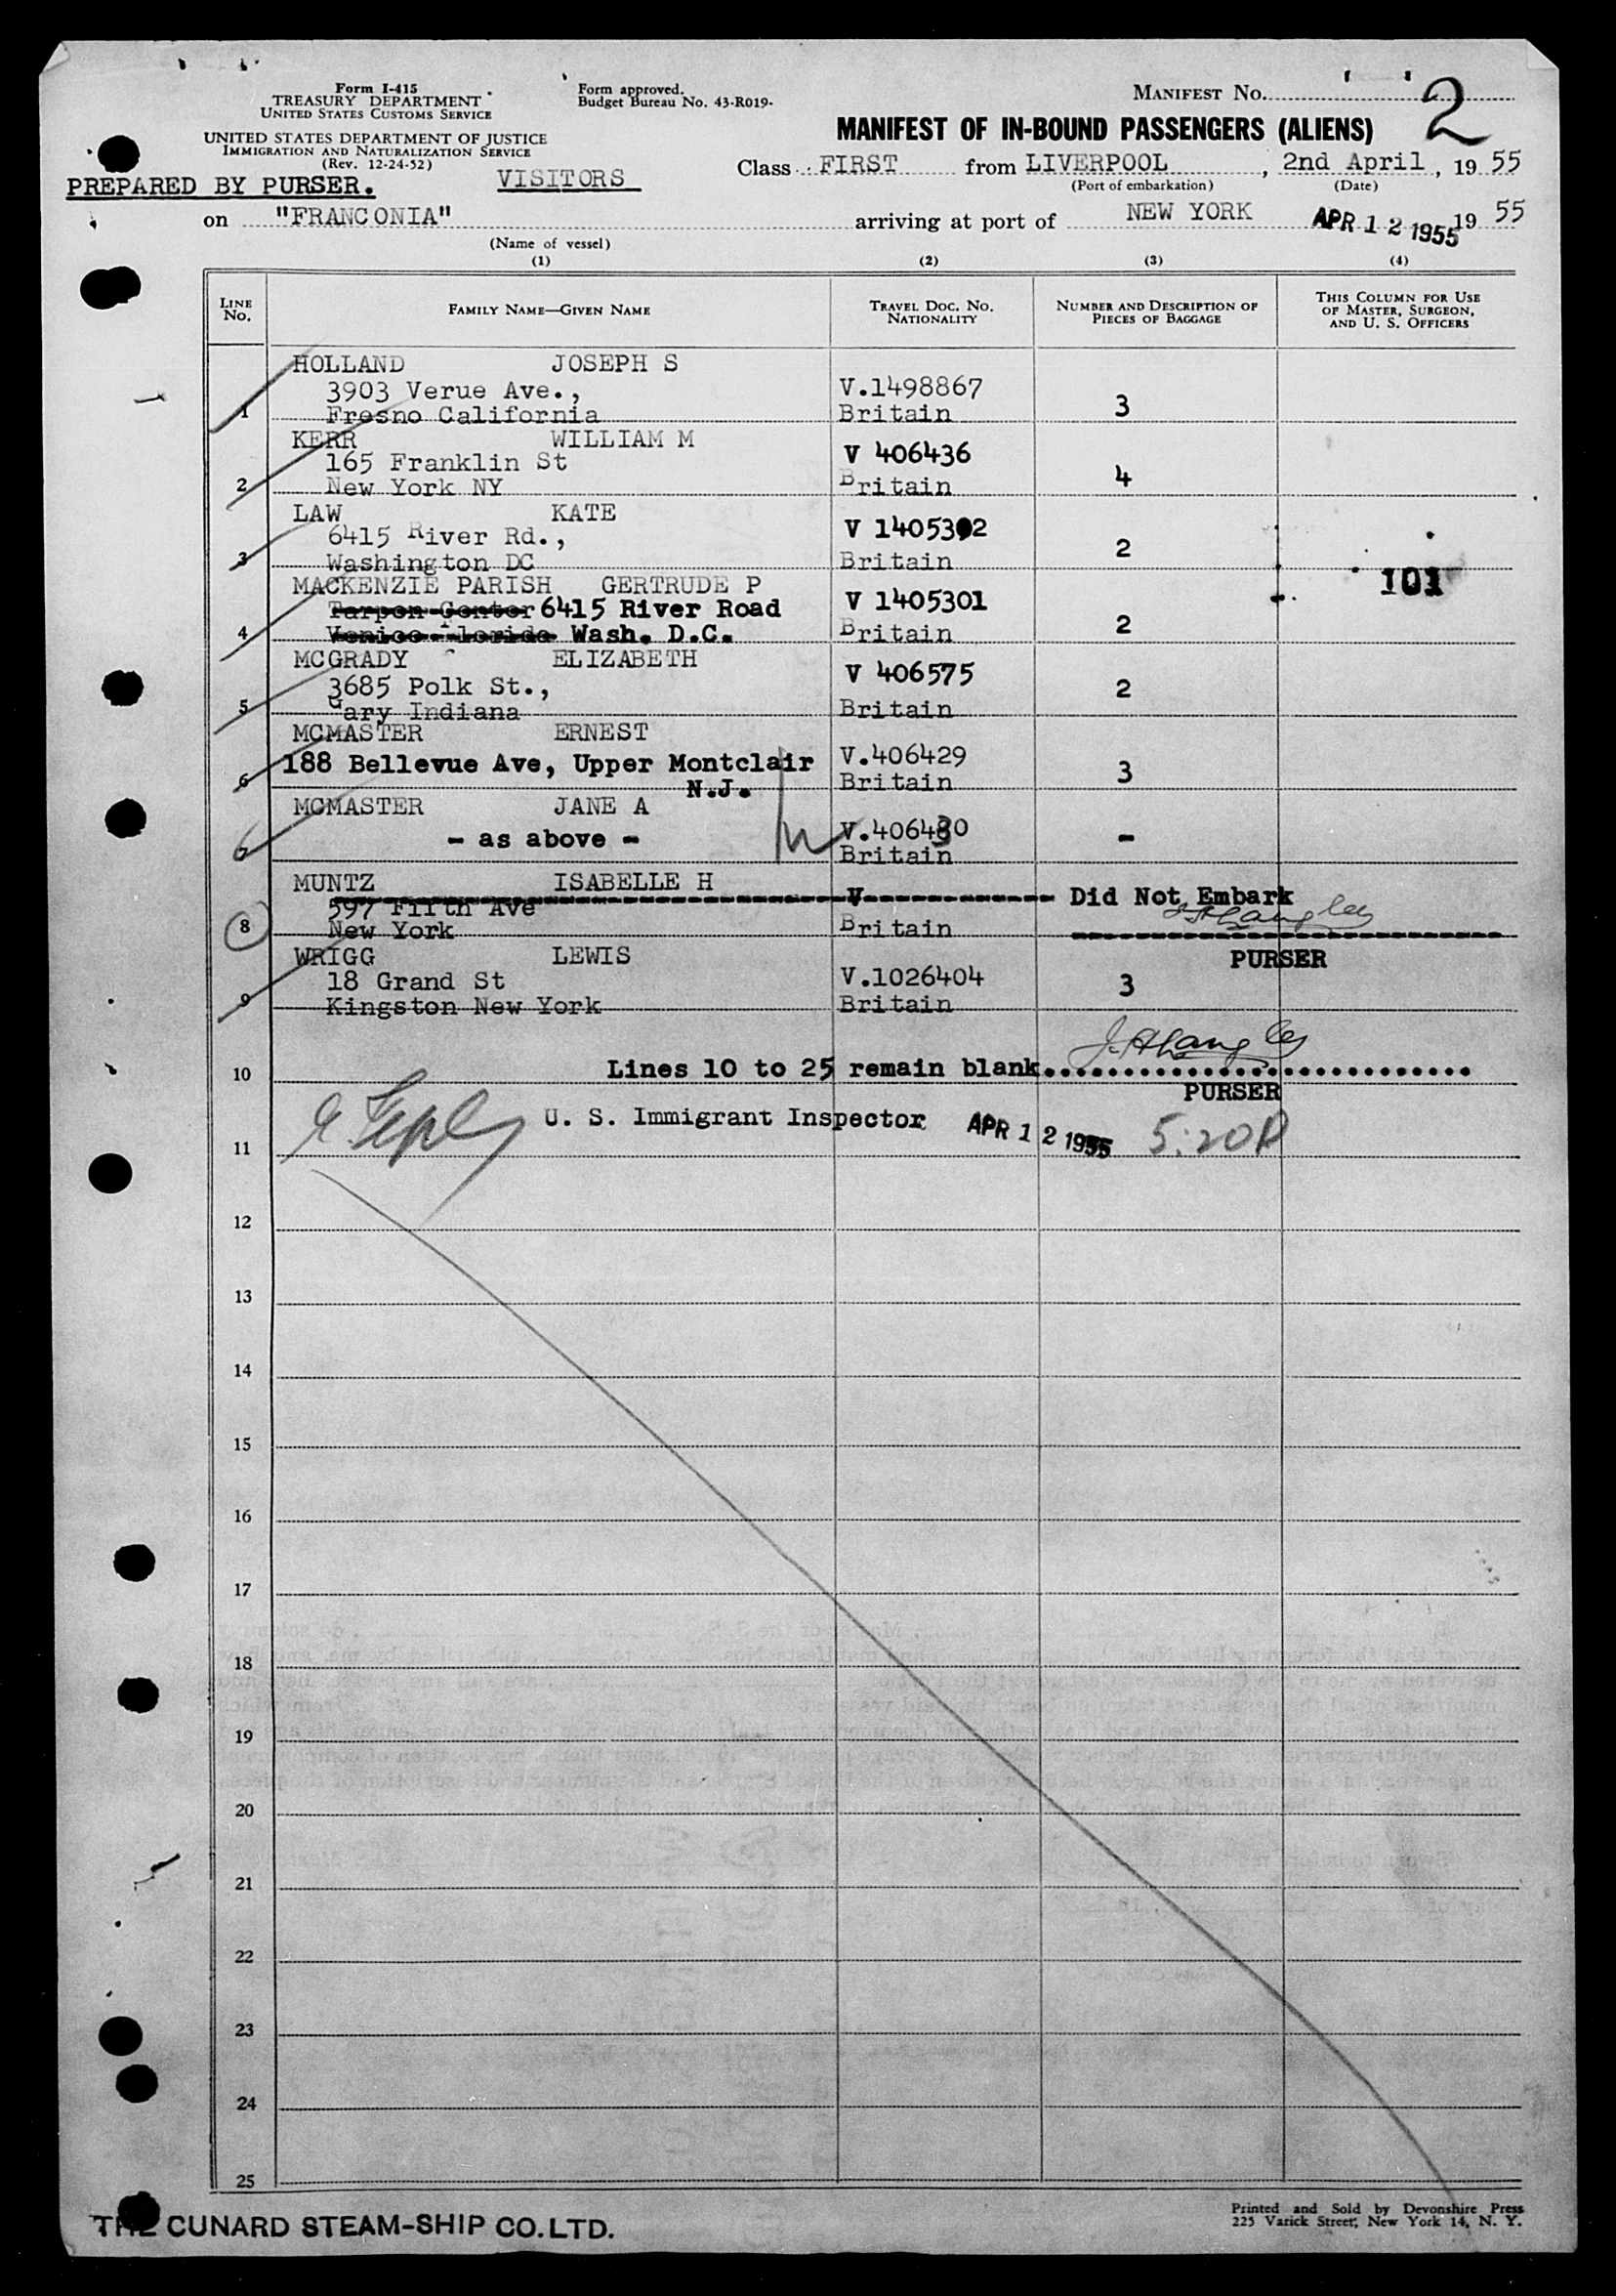 Form I-415
TREASURY DEPARTMENT
UNITED STATES CUSTOMS SERVICE
UNITED STATES DEPARTMENT OF JUSTICE
IMMIGRATION AND NATURALIZATION SERVICE
(Rev. 12-24-52)
Form approved.
Budget Bureau No. 43-R019-
MANIFEST NO. 2
MANIFEST OF IN-BOUND PASSENGERS (ALIENS)
PREPARED BY PURSER. VISITORS
Class FIRST from LIVERPOOL, 2nd April, 19 55
(Port of embarkation) (Date)
on "FRANCONIA" arriving at port of NEW YORK APR 12 1955 19 55
(Name of vessel)
(1) (2) (3) (4)
LINE NO.
FAMILY NAME—GIVEN NAME
TRAVEL DOC. NO. NATIONALITY
NUMBER AND DESCRIPTION OF PIECES OF BAGGAGE
THIS COLUMN FOR USE OF MASTER, SURGEON, AND U. S. OFFICERS
HOLLAND JOSEPH S
3903 Verue Ave., V.1498867
1 Fresno California Britain 3
KERR WILLIAM M
165 Franklin St V 406436
2 New York NY Britain 4
LAW KATE
6415 River Rd., V 1405302
3 Washington DC Britain 2
MACKENZIE PARISH GERTRUDE P 101
Tarpon Center 6415 River Road V 1405301
4 Venice Florida Wash. D.C. Britain 2
MCGRADY ELIZABETH
3685 Polk St., V 406575
5 Gary Indiana Britain 2
MCMASTER ERNEST
188 Bellevue Ave, Upper Montclair V.406429
6 N.J. Britain 3
MCMASTER JANE A
- as above - V.406430
7 Britain -
MUNTZ ISABELLE H V Did Not Embark
597 Fifth Ave
8 New York Britain
PURSER
WRIGG LEWIS
18 Grand St V.1026404
9 Kingston New York Britain 3
10 Lines 10 to 25 remain blank
PURSER
11 U. S. Immigrant Inspector APR 12 1955 5:20P
12
13
14
15
16
17
18
19
20
21
22
23
24
25
THE CUNARD STEAM-SHIP CO. LTD.
Printed and Sold by Devonshire Press
225 Varick Street, New York 14, N. Y.